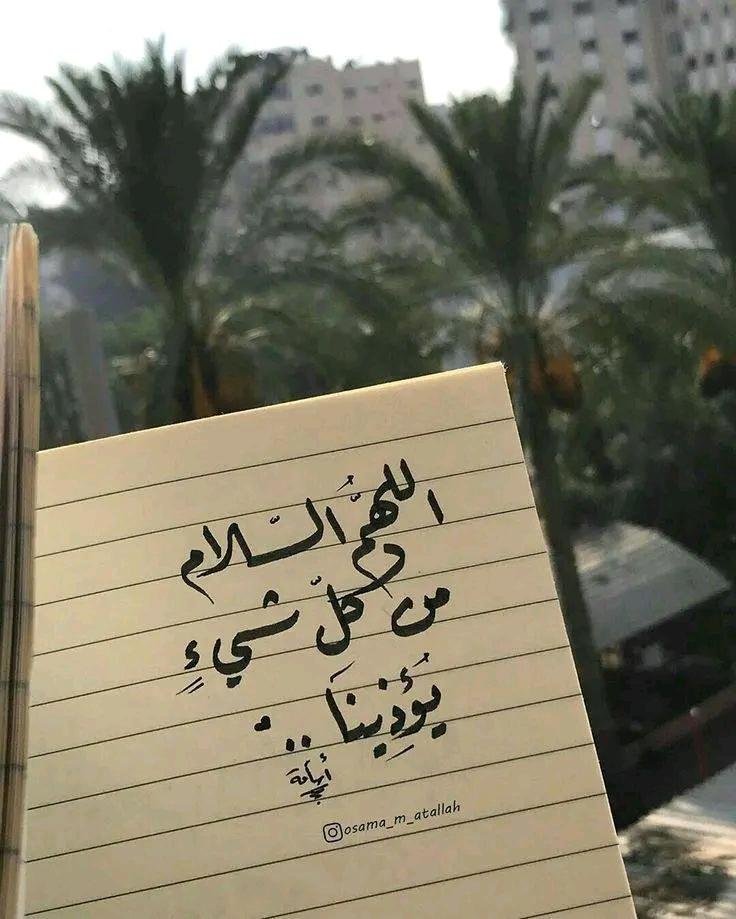 اللهمَّ السّلامُ
من كلّ شيءٍ
يُؤذِينَا ..
أسامة
osama_m_atallah